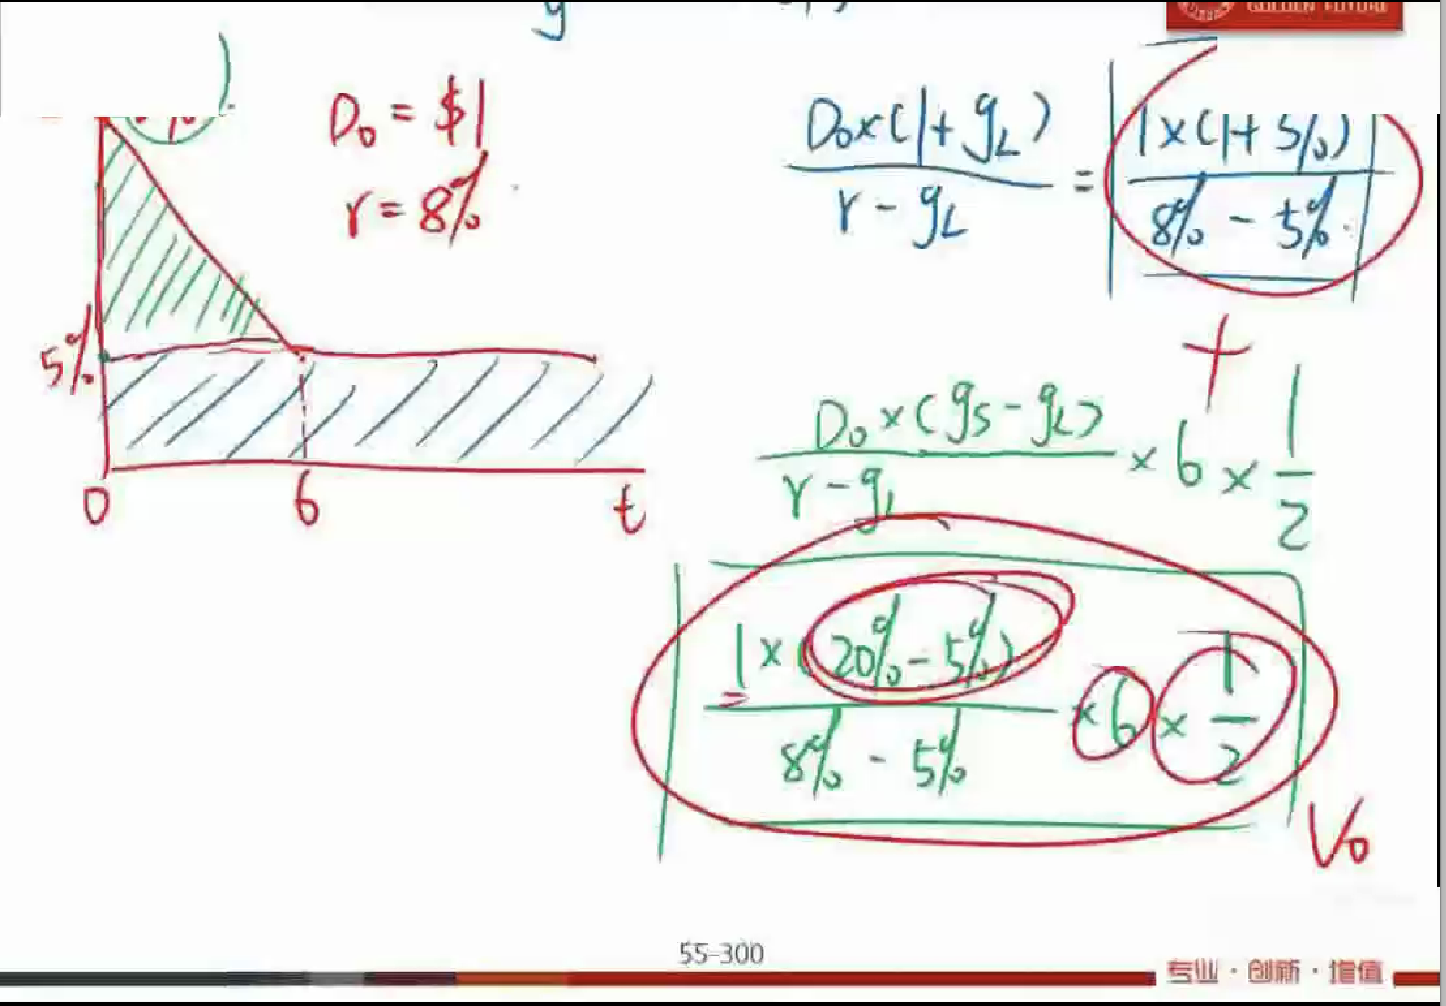 GOLDEN FUTURE
D₀ = $1
r = 8%
5%
0
6
t
D₀×(1+g_L) / r - g_L = 1×(1+5%) / 8% - 5%
+
D₀×(g_S-g_L) / r - g_L × 6 × 1/2
1×(20%-5%) / 8% - 5% × 6 × 1/2
V₀
55-300
专业·创新·增值